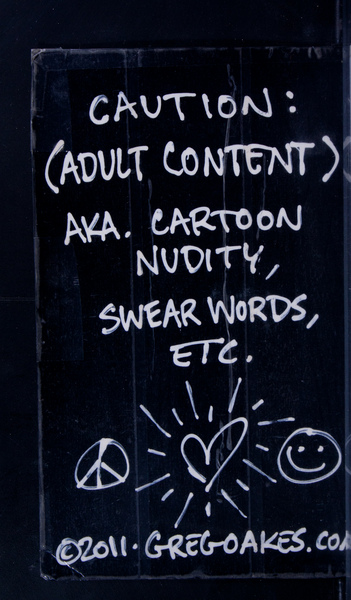 CAUTION:
(ADULT CONTENT)
AKA. CARTOON
NUDITY,
SWEAR WORDS,
ETC.
©2011. GREGOAKES.CO